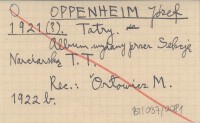 OPPENHEIM Józef
1921 (?). Tatry.
Album wydany przez Sekcję
Narciarską T. T.
Rec.: Orłowicz M.
1922 b.